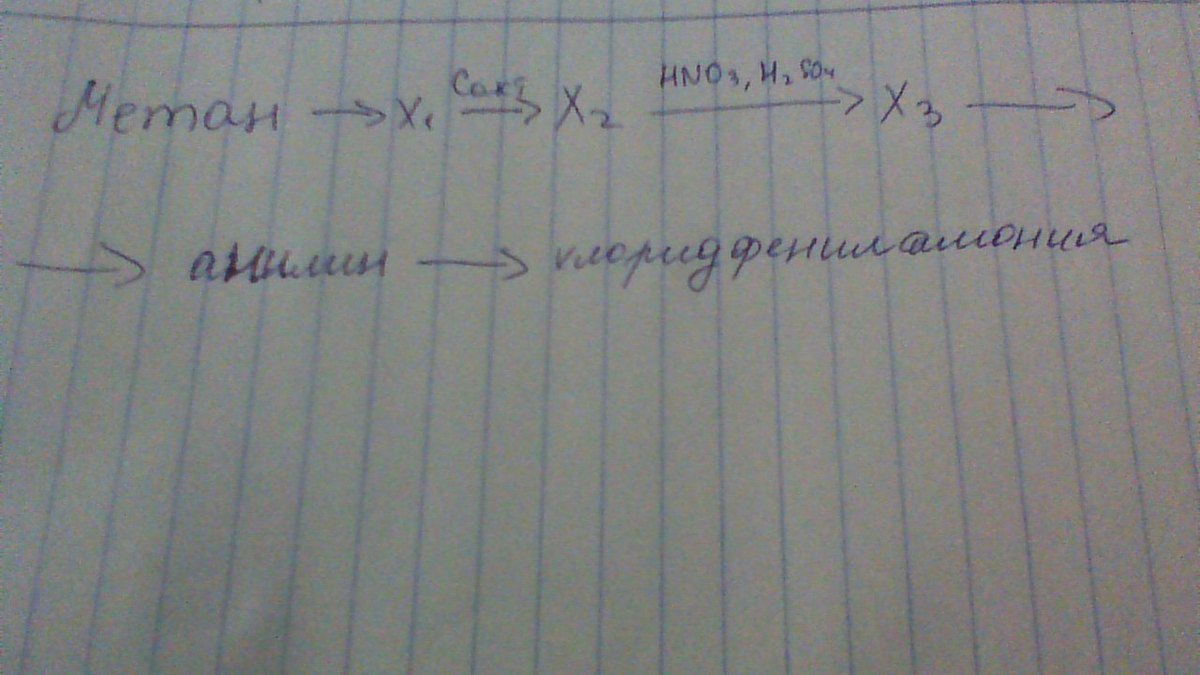 Метан → X₁ Cакт → X₂ HNO₃, H₂SO₄ → X₃ →
→ анилин → хлорид фениламония